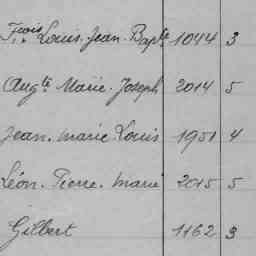 Fçois Louis Jean Baptte 1044 3
Augte Marie Joseph 2014 5
Jean Marie Louis 1951 4
Léon Pierre Marie 2015 5
Gilbert 1162 3